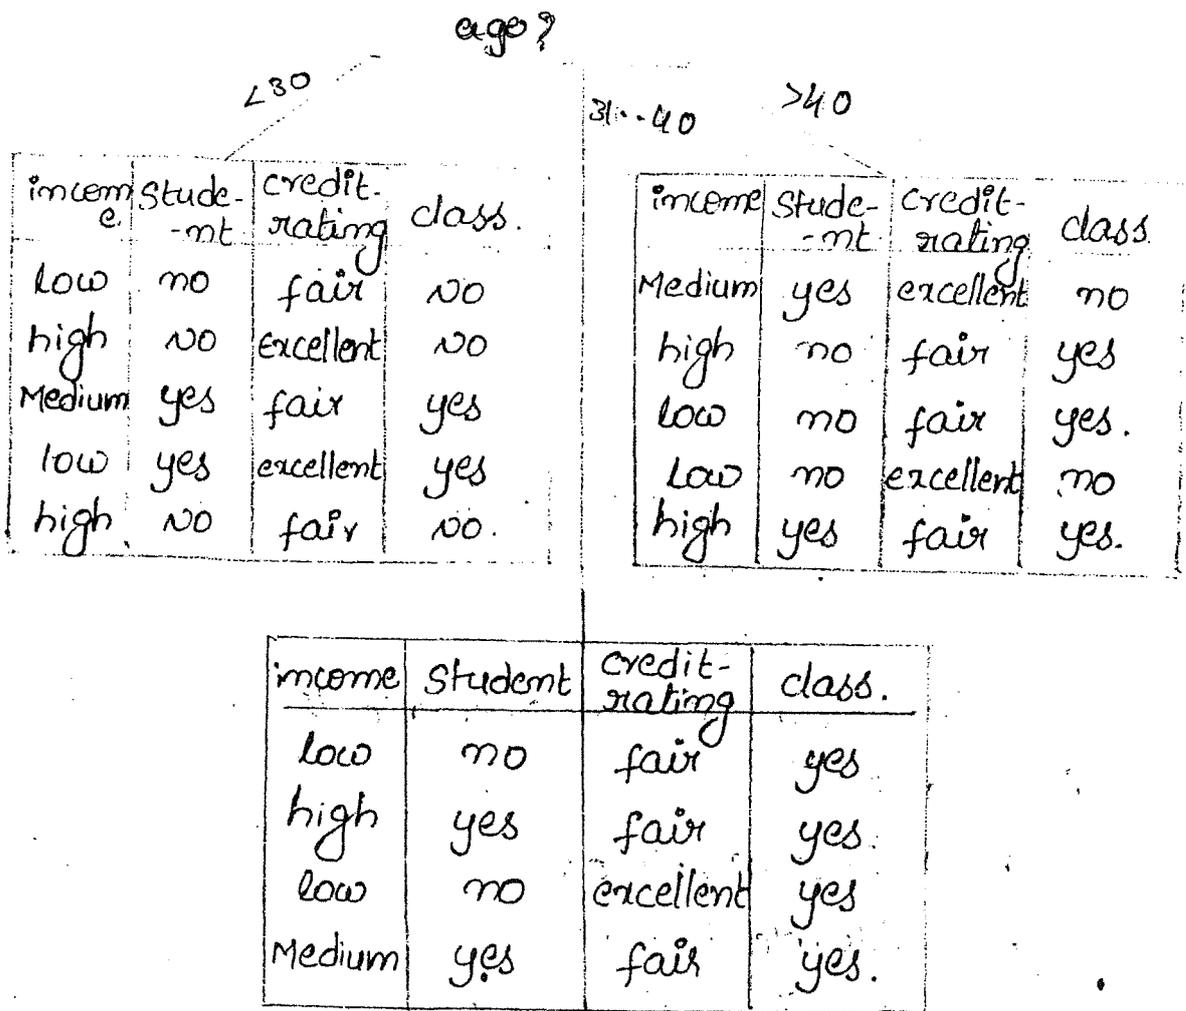 age?
<30
31..40
>40
income. Stude- credit- class.
-nt rating
low no fair NO
high NO Excellent NO
Medium yes fair yes
low yes excellent yes
high NO fair NO.
income Stude- credit- class
-nt rating
Medium yes excellent no
high no fair yes
low no fair yes.
Low no excellent no
high yes fair yes.
income Student credit- class.
rating
low no fair yes
high yes fair yes.
low no excellent yes
Medium yes fair yes.